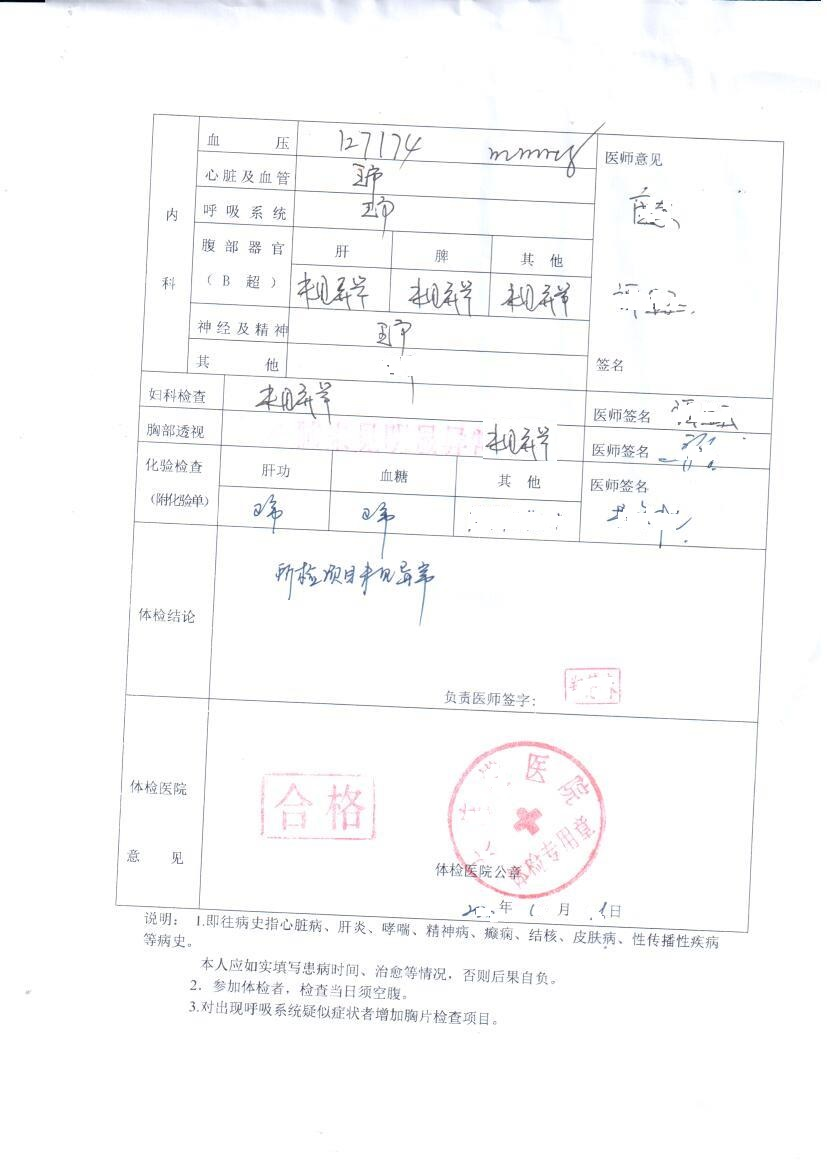 血压 127/74 mmHg 医师意见
心脏及血管 正常
呼吸系统 正常
内科
腹部器官（B超） 肝 脾 其他
未见异常 未见异常 未见异常
神经及精神 正常
其他 签名
妇科检查 未见异常 医师签名
胸部透视 未见异常 医师签名
化验检查（附化验单） 肝功 血糖 其他 医师签名
正常 正常
体检结论 所检项目未见异常
负责医师签字：
体检医院意见
合格
医院
体检专用章
体检医院公章
年 月 日
说明： 1.即往病史指心脏病、肝炎、哮喘、精神病、癫痫、结核、皮肤病、性传播性疾病
等病史。
本人应如实填写患病时间、治愈等情况，否则后果自负。
2．参加体检者，检查当日须空腹。
3.对出现呼吸系统疑似症状者增加胸片检查项目。